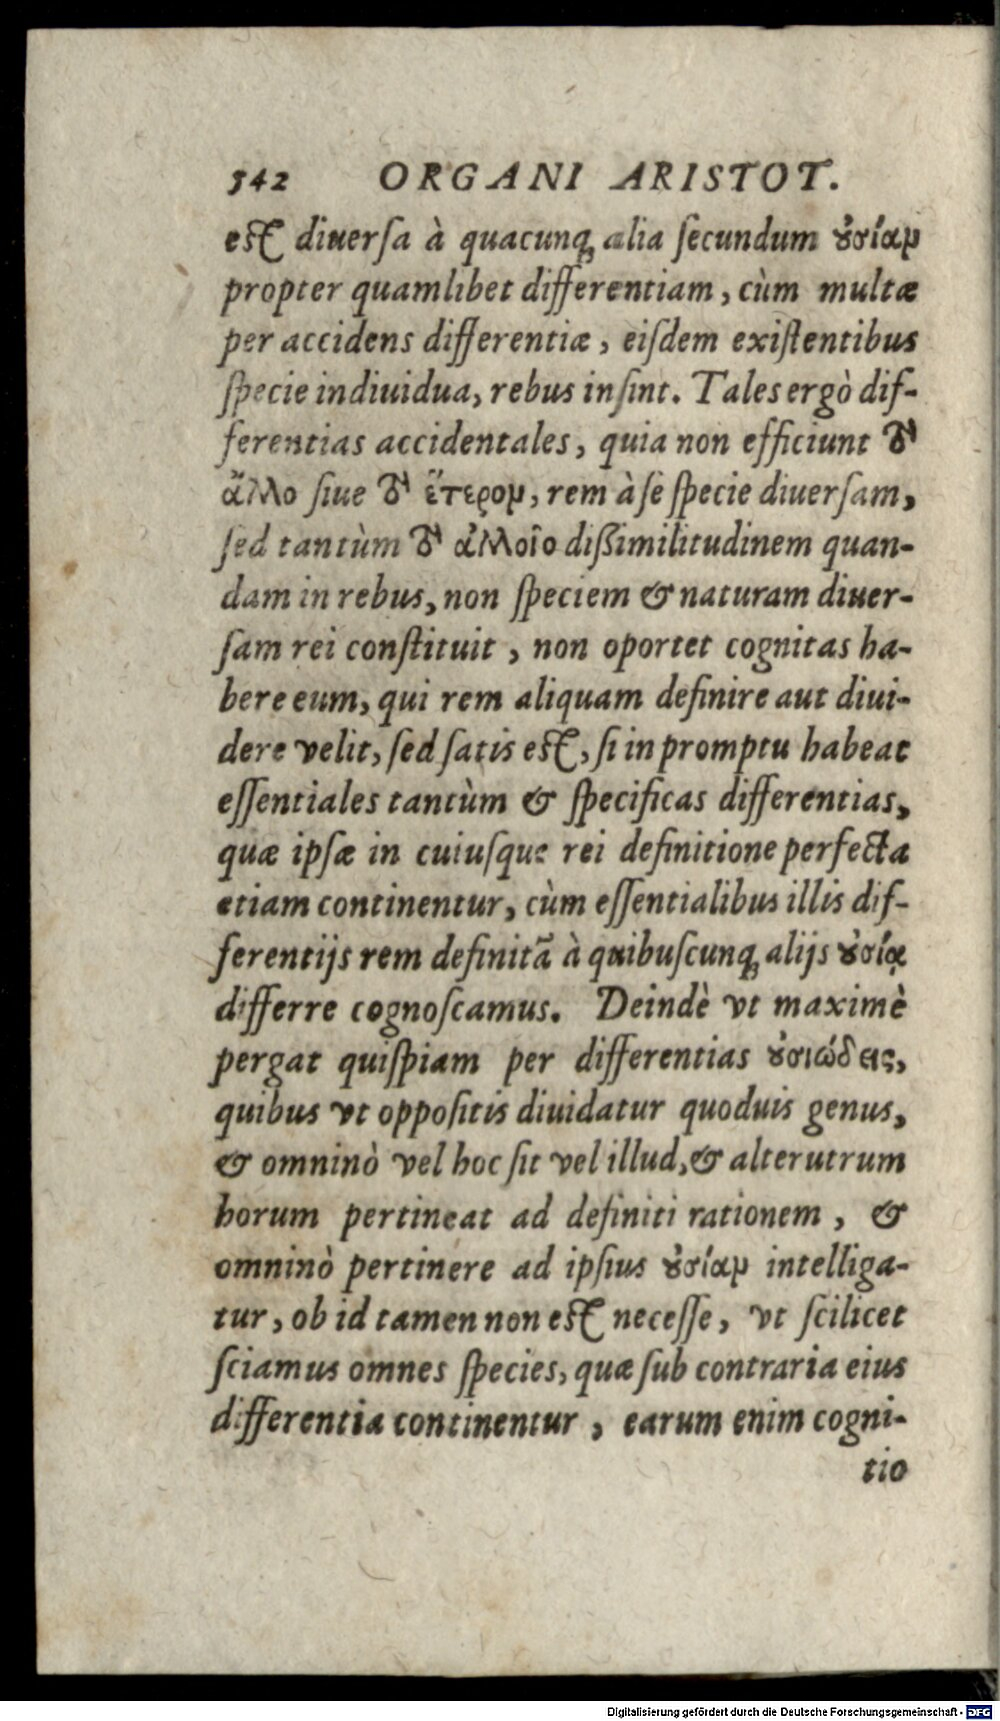 542 ORGANI ARISTOT.
est diuersa à quacunq; alia secundum ȣ̓σίαν
propter quamlibet differentiam, cùm multæ
per accidens differentiæ, eisdem existentibus
specie indiuidua, rebus insint. Tales ergò dif-
ferentias accidentales, quia non efficiunt τὸ
ἄλλο siue τὸ ἕτερον, rem à se specie diuersam,
sed tantùm τὸ ἀλλοῖο dißimilitudinem quan-
dam in rebus, non speciem & naturam diuer-
sam rei constituit, non oportet cognitas ha-
bere eum, qui rem aliquam definire aut diui-
dere velit, sed satis est, si in promptu habeat
essentiales tantùm & specificas differentias,
quæ ipsæ in cuiusque rei definitione perfecta
etiam continentur, cùm essentialibus illis dif-
ferentijs rem definitã à quibuscunq; alijs ȣ̓σίᾳ
differre cognoscamus. Deindè vt maximè
pergat quispiam per differentias ȣ̓σιώδεις,
quibus vt oppositis diuidatur quoduis genus,
& omninò vel hoc sit vel illud, & alterutrum
horum pertineat ad definiti rationem, &
omninò pertinere ad ipsius ȣ̓σίαν intelliga-
tur, ob id tamen non est necesse, vt scilicet
sciamus omnes species, quæ sub contraria eius
differentia continentur, earum enim cogni-
tio
Digitalisierung gefördert durch die Deutsche Forschungsgemeinschaft - DFG